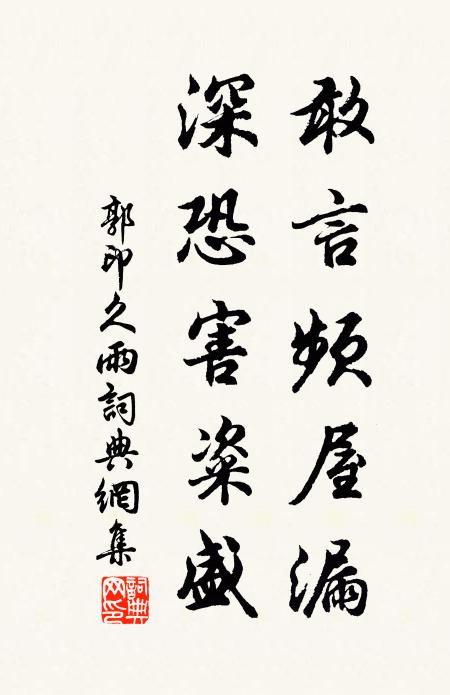 敢言頻屋漏
深恐害粢盛
郭印久雨詞典網集
詞典網印